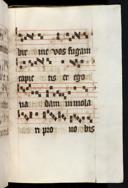 bit me vos fugam
capie tis et ego
va dam immola
ri pro vobis